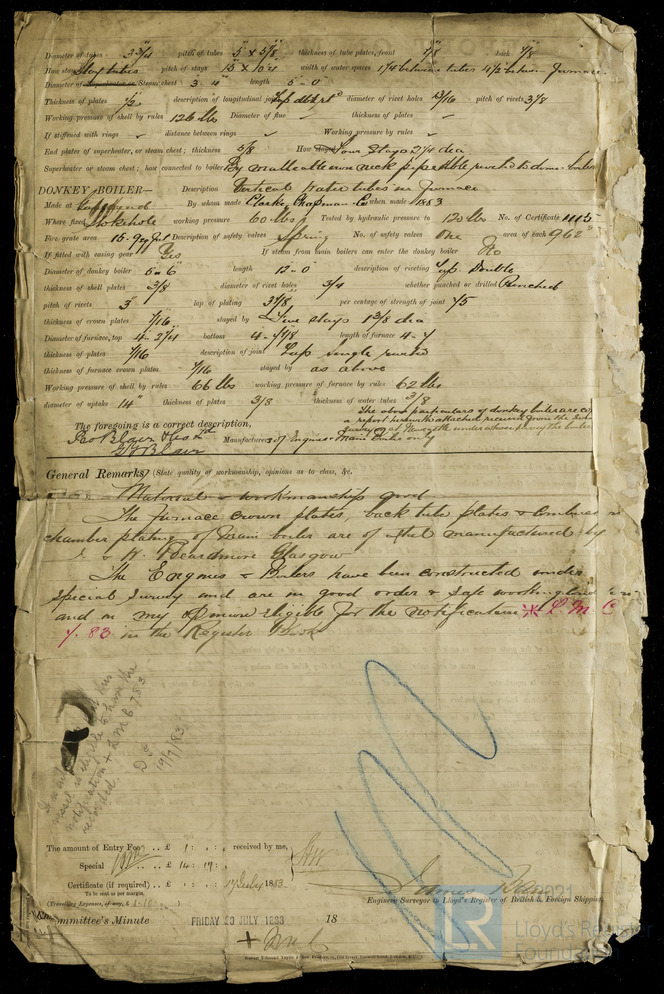 Diameter of tubes 3 3/4" pitch of tubes 5" x 5 1/8 thickness of tube plates, front 7/8" back 7/8
How stayed Stay tubes pitch of stays 15" x 10"1/4 width of water spaces 1 1/4 between tubes 4 1/2 between furnaces
Diameter of Superheater or Steam chest 3'- 4" length 5'- 0"
Thickness of plates 1/2" description of longitudinal joint Lap dble rt diameter of rivet holes 13/16 pitch of rivets 3/8
Working pressure of shell by rules 126 lbs Diameter of flue thickness of plates
If stiffened with rings distance between rings Working pressure by rules
End plates of superheater, or steam chest; thickness 5/8 How stayed Four Stays 2 1/4 dea
Superheater or steam chest; how connected to boiler By malleable iron neck pipe dble riveted to dome & boiler
DONKEY BOILER— Description Vertical Water tubes in furnace
Made at Gateshead By whom made Clarke Chapman & Co when made 1883
Where fixed Stokehole working pressure 60 lbs Tested by hydraulic pressure to 120 lbs No. of Certificate 1115
Fire grate area 15.9 sq ft Description of safety valves Spring No. of safety valves One area of each 9.62"
If fitted with easing gear Yes If steam from main boilers can enter the donkey boiler No
Diameter of donkey boiler 5'- 6" length 12'- 0" description of riveting Lap. Double
thickness of shell plates 3/8 diameter of rivet holes 3/4 whether punched or drilled Punched
pitch of rivets 3" lap of plating 3 7/8" per centage of strength of joint 75
thickness of crown plates 7/16 stayed by Five stays 1 3/8 dea
Diameter of furnace, top 4'- 2 3/4 bottom 4'- 4 7/8 length of furnace 4'- 4
thickness of plates 7/16 description of joint Lap single riveted
thickness of furnace crown plates 7/16 stayed by as above
Working pressure of shell by rules 66 lbs working pressure of furnace by rules 62 lbs
diameter of uptake 14" thickness of plates 3/8 thickness of water tubes 3/8
The above particulars of donkey boiler are
a report herewith attached received from the
Surveyor at Newcastle under whose survey the boiler
The foregoing is a correct description,
Geo Blair & Co Ld Manufacturers of Engines & Main Boilers only
General Remarks (State quality of workmanship, opinions as to class, &c.
Material & workmanship good
The furnace crown plates, back tube plates & Combustion
chamber plating of main boiler are of steel manufactured by
& W. Beardmore Glasgow
The Engines & Boilers have been constructed under
special survey and are in good order & safe working
and in my opinion eligible for the notification ✠ L M C
7. 83 in the Register Book
vessel is eligible to have the
notification + LMC 7.83
recorded.
19/7/83
The amount of Entry Fee .. £ 1 : : received by me,
Special .. £ 14 : 17 :
Certificate (if required) .. £ : : 17 July 1883
To be sent as per margin.
(Travelling Expenses, if any, £ )
James
Engineer Surveyor to Lloyd's Register of British & Foreign Shipping.
Committee's Minute FRIDAY 20 JULY 1883 18
+ LMC
© 2021
LR
Lloyd's Register
Foundation